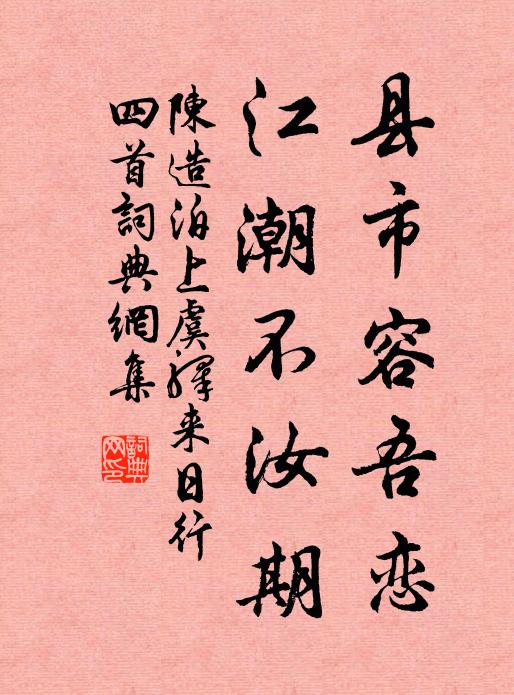 县市容吾恋
江潮不汝期
陳造泊上虞驛来日行
四首詞典網集
詞典网印